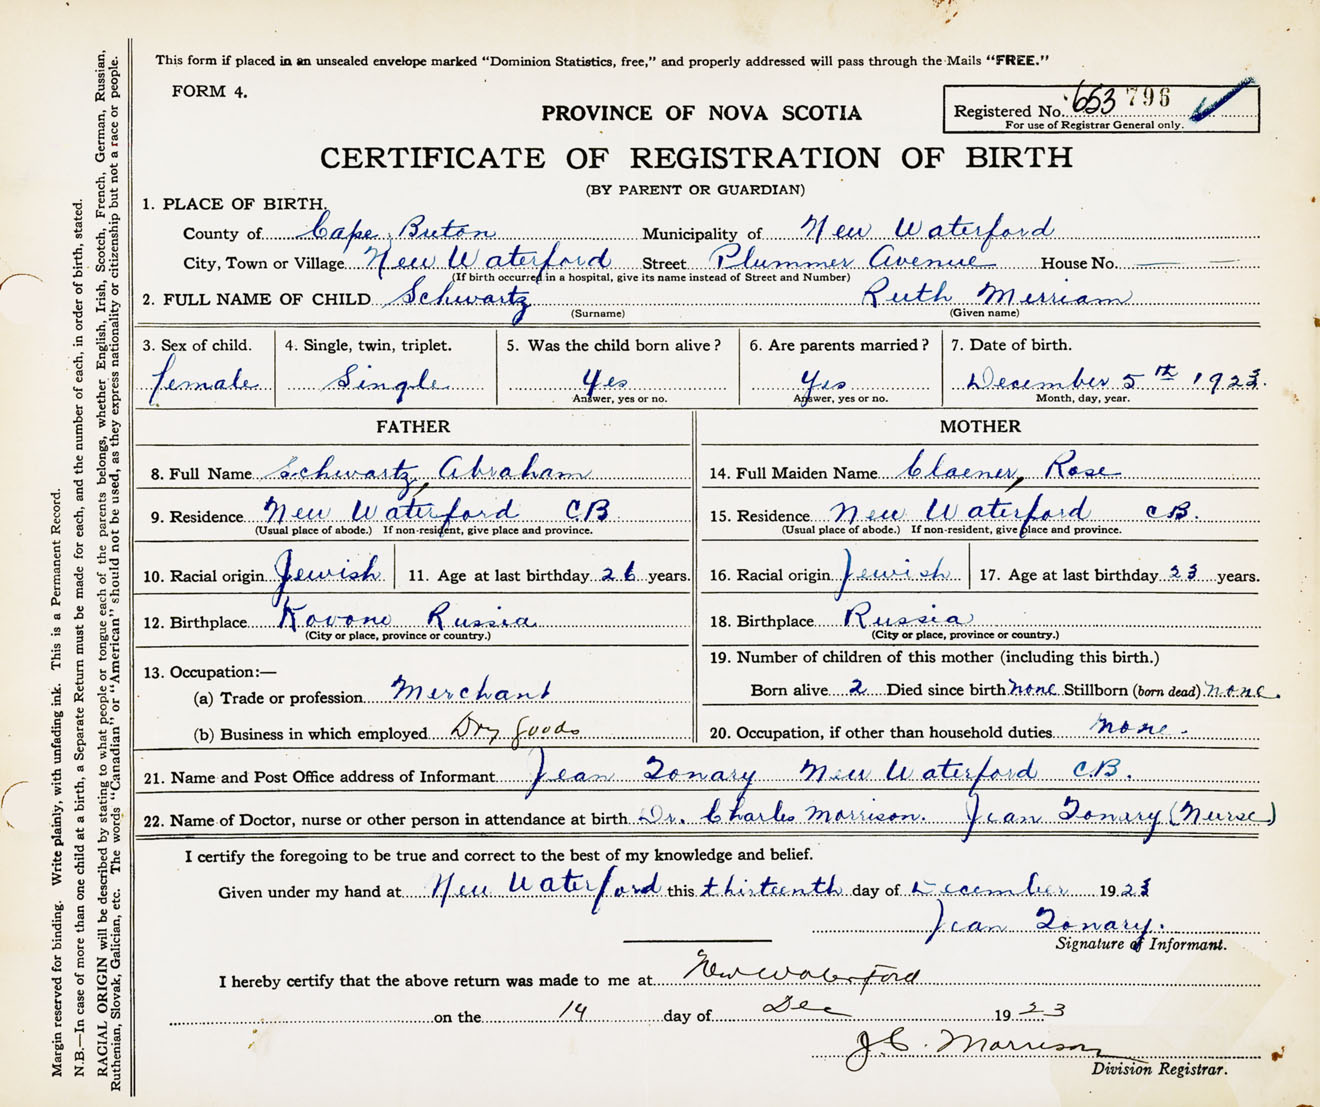 This form if placed in an unsealed envelope marked “Dominion Statistics, free,” and properly addressed will pass through the Mails “FREE.”
FORM 4.
Registered No. 653 796
For use of Registrar General only.
PROVINCE OF NOVA SCOTIA
CERTIFICATE OF REGISTRATION OF BIRTH
(BY PARENT OR GUARDIAN)
1. PLACE OF BIRTH.
County of Cape Breton Municipality of New Waterford
City, Town or Village New Waterford Street Plummer Avenue House No.
(If birth occurred in a hospital, give its name instead of Street and Number)
2. FULL NAME OF CHILD Schwartz Ruth Merriam
(Surname) (Given name)
3. Sex of child. 4. Single, twin, triplet. 5. Was the child born alive? 6. Are parents married? 7. Date of birth.
female Single Yes Yes December 5th 1923.
Answer, yes or no. Answer, yes or no. Month, day, year.
FATHER MOTHER
8. Full Name Schwartz, Abraham 14. Full Maiden Name Claener, Rose
9. Residence New Waterford CB 15. Residence New Waterford C.B.
(Usual place of abode.) If non-resident, give place and province. (Usual place of abode.) If non-resident, give place and province.
10. Racial origin Jewish 11. Age at last birthday 26 years. 16. Racial origin Jewish 17. Age at last birthday 23 years.
12. Birthplace Kovone Russia 18. Birthplace Russia
(City or place, province or country.) (City or place, province or country.)
13. Occupation:— 19. Number of children of this mother (including this birth.)
(a) Trade or profession Merchant Born alive 2 Died since birth none Stillborn (born dead) none.
(b) Business in which employed Dry goods 20. Occupation, if other than household duties none.
21. Name and Post Office address of Informant Jean Tonary New Waterford C.B.
22. Name of Doctor, nurse or other person in attendance at birth Dr. Charles Morrison. Jean Tonary (Nurse)
I certify the foregoing to be true and correct to the best of my knowledge and belief.
Given under my hand at New Waterford this thirteenth day of December 1923
Jean Tonary.
Signature of Informant.
I hereby certify that the above return was made to me at New Waterford
on the 14 day of Dec 1923
J.C. Morrison
Division Registrar.
Margin reserved for binding. Write plainly, with unfading ink. This is a Permanent Record.
N.B.—In case of more than one child at a birth, a Separate Return must be made for each, and the number of each, in order of birth, stated.
RACIAL ORIGIN will be described by stating to what people or tongue each of the parents belongs, whether English, Irish, Scotch, French, German, Russian,
Ruthenian, Slovak, Galician, etc. The words “Canadian” or “American” should not be used, as they express nationality or citizenship but not a race or people.